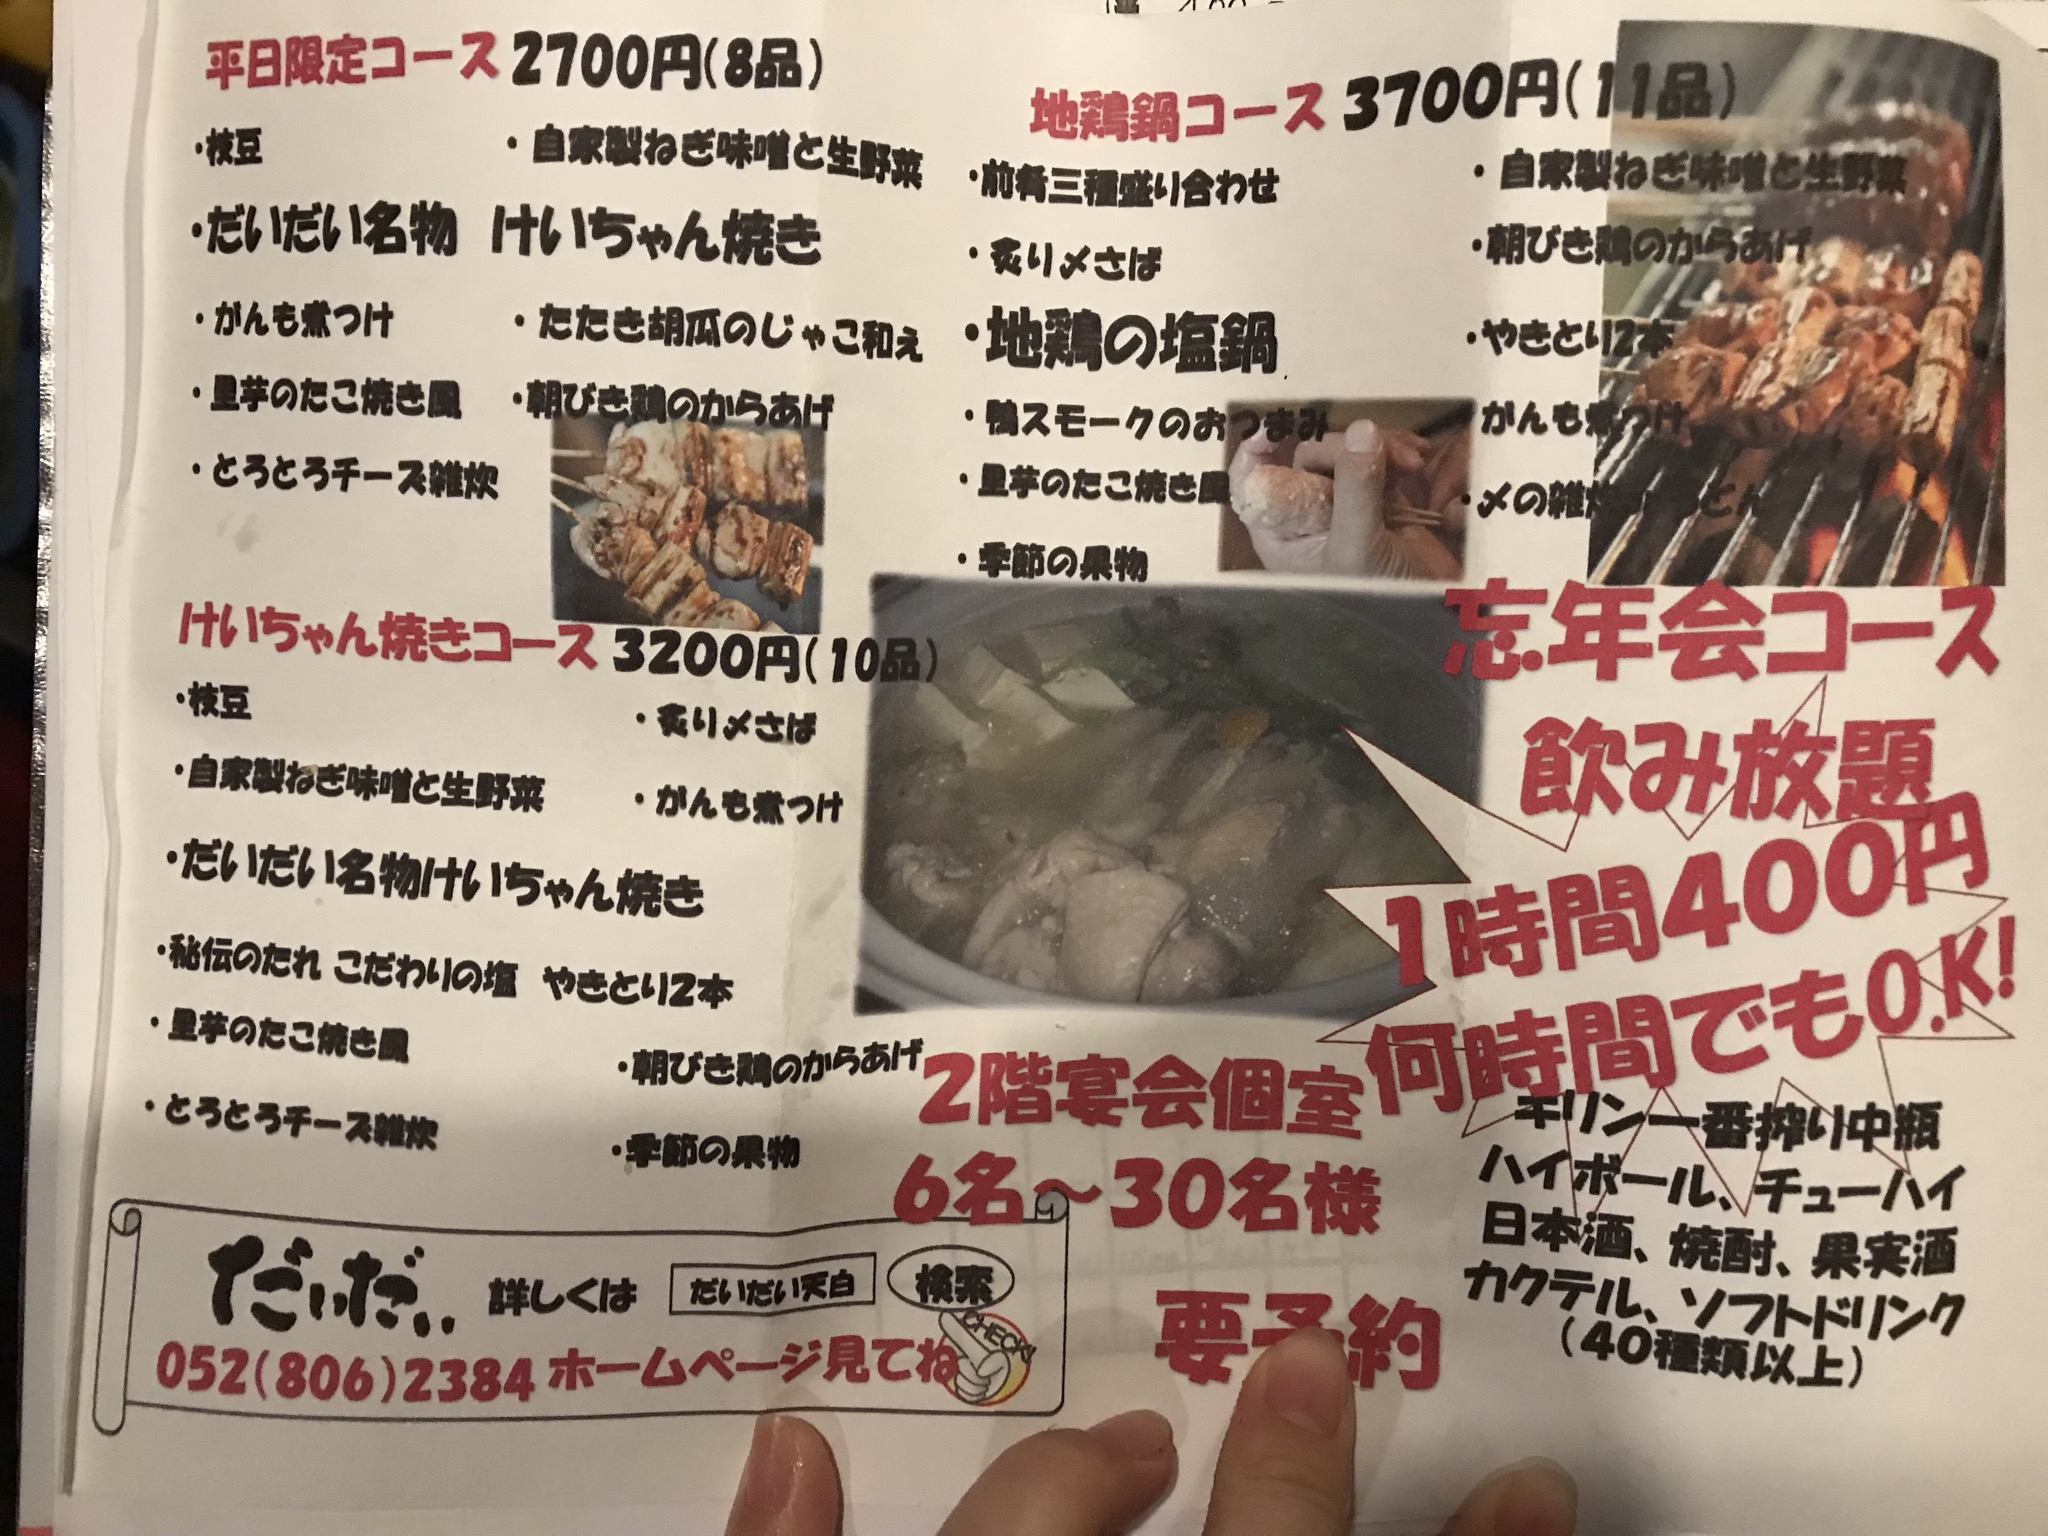 平日限定コース 2700円(8品)
・枝豆 ・自家製ねぎ味噌と生野菜
・だいだい名物 けいちゃん焼き
・がんも煮つけ ・たたき胡瓜のじゃこ和え
・里芋のたこ焼き風 ・朝びき鶏のからあげ
・とろとろチーズ雑炊
けいちゃん焼きコース 3200円(10品)
・枝豆 ・炙り〆さば
・自家製ねぎ味噌と生野菜 ・がんも煮つけ
・だいだい名物けいちゃん焼き
・秘伝のたれ こだわりの塩 やきとり2本
・里芋のたこ焼き風 ・朝びき鶏のからあげ
・とろとろチーズ雑炊 ・季節の果物
地鶏鍋コース 3700円(11品)
・前肴三種盛り合わせ ・自家製ねぎ味噌と生野菜
・炙り〆さば ・朝びき鶏のからあげ
・地鶏の塩鍋 ・やきとり2本
・鴨スモークのおつまみ がんも煮つけ
・里芋のたこ焼き風 ・〆の雑炊 うどん
・季節の果物
忘年会コース
飲み放題
1時間400円
何時間でもO.K!
キリン一番搾り中瓶
ハイボール、チューハイ
日本酒、焼酎、果実酒
カクテル、ソフトドリンク
(40種類以上)
2階宴会個室
6名〜30名様
要予約
だいだい 詳しくは だいだい天白 検索
CHECK
052(806)2384 ホームページ見てね